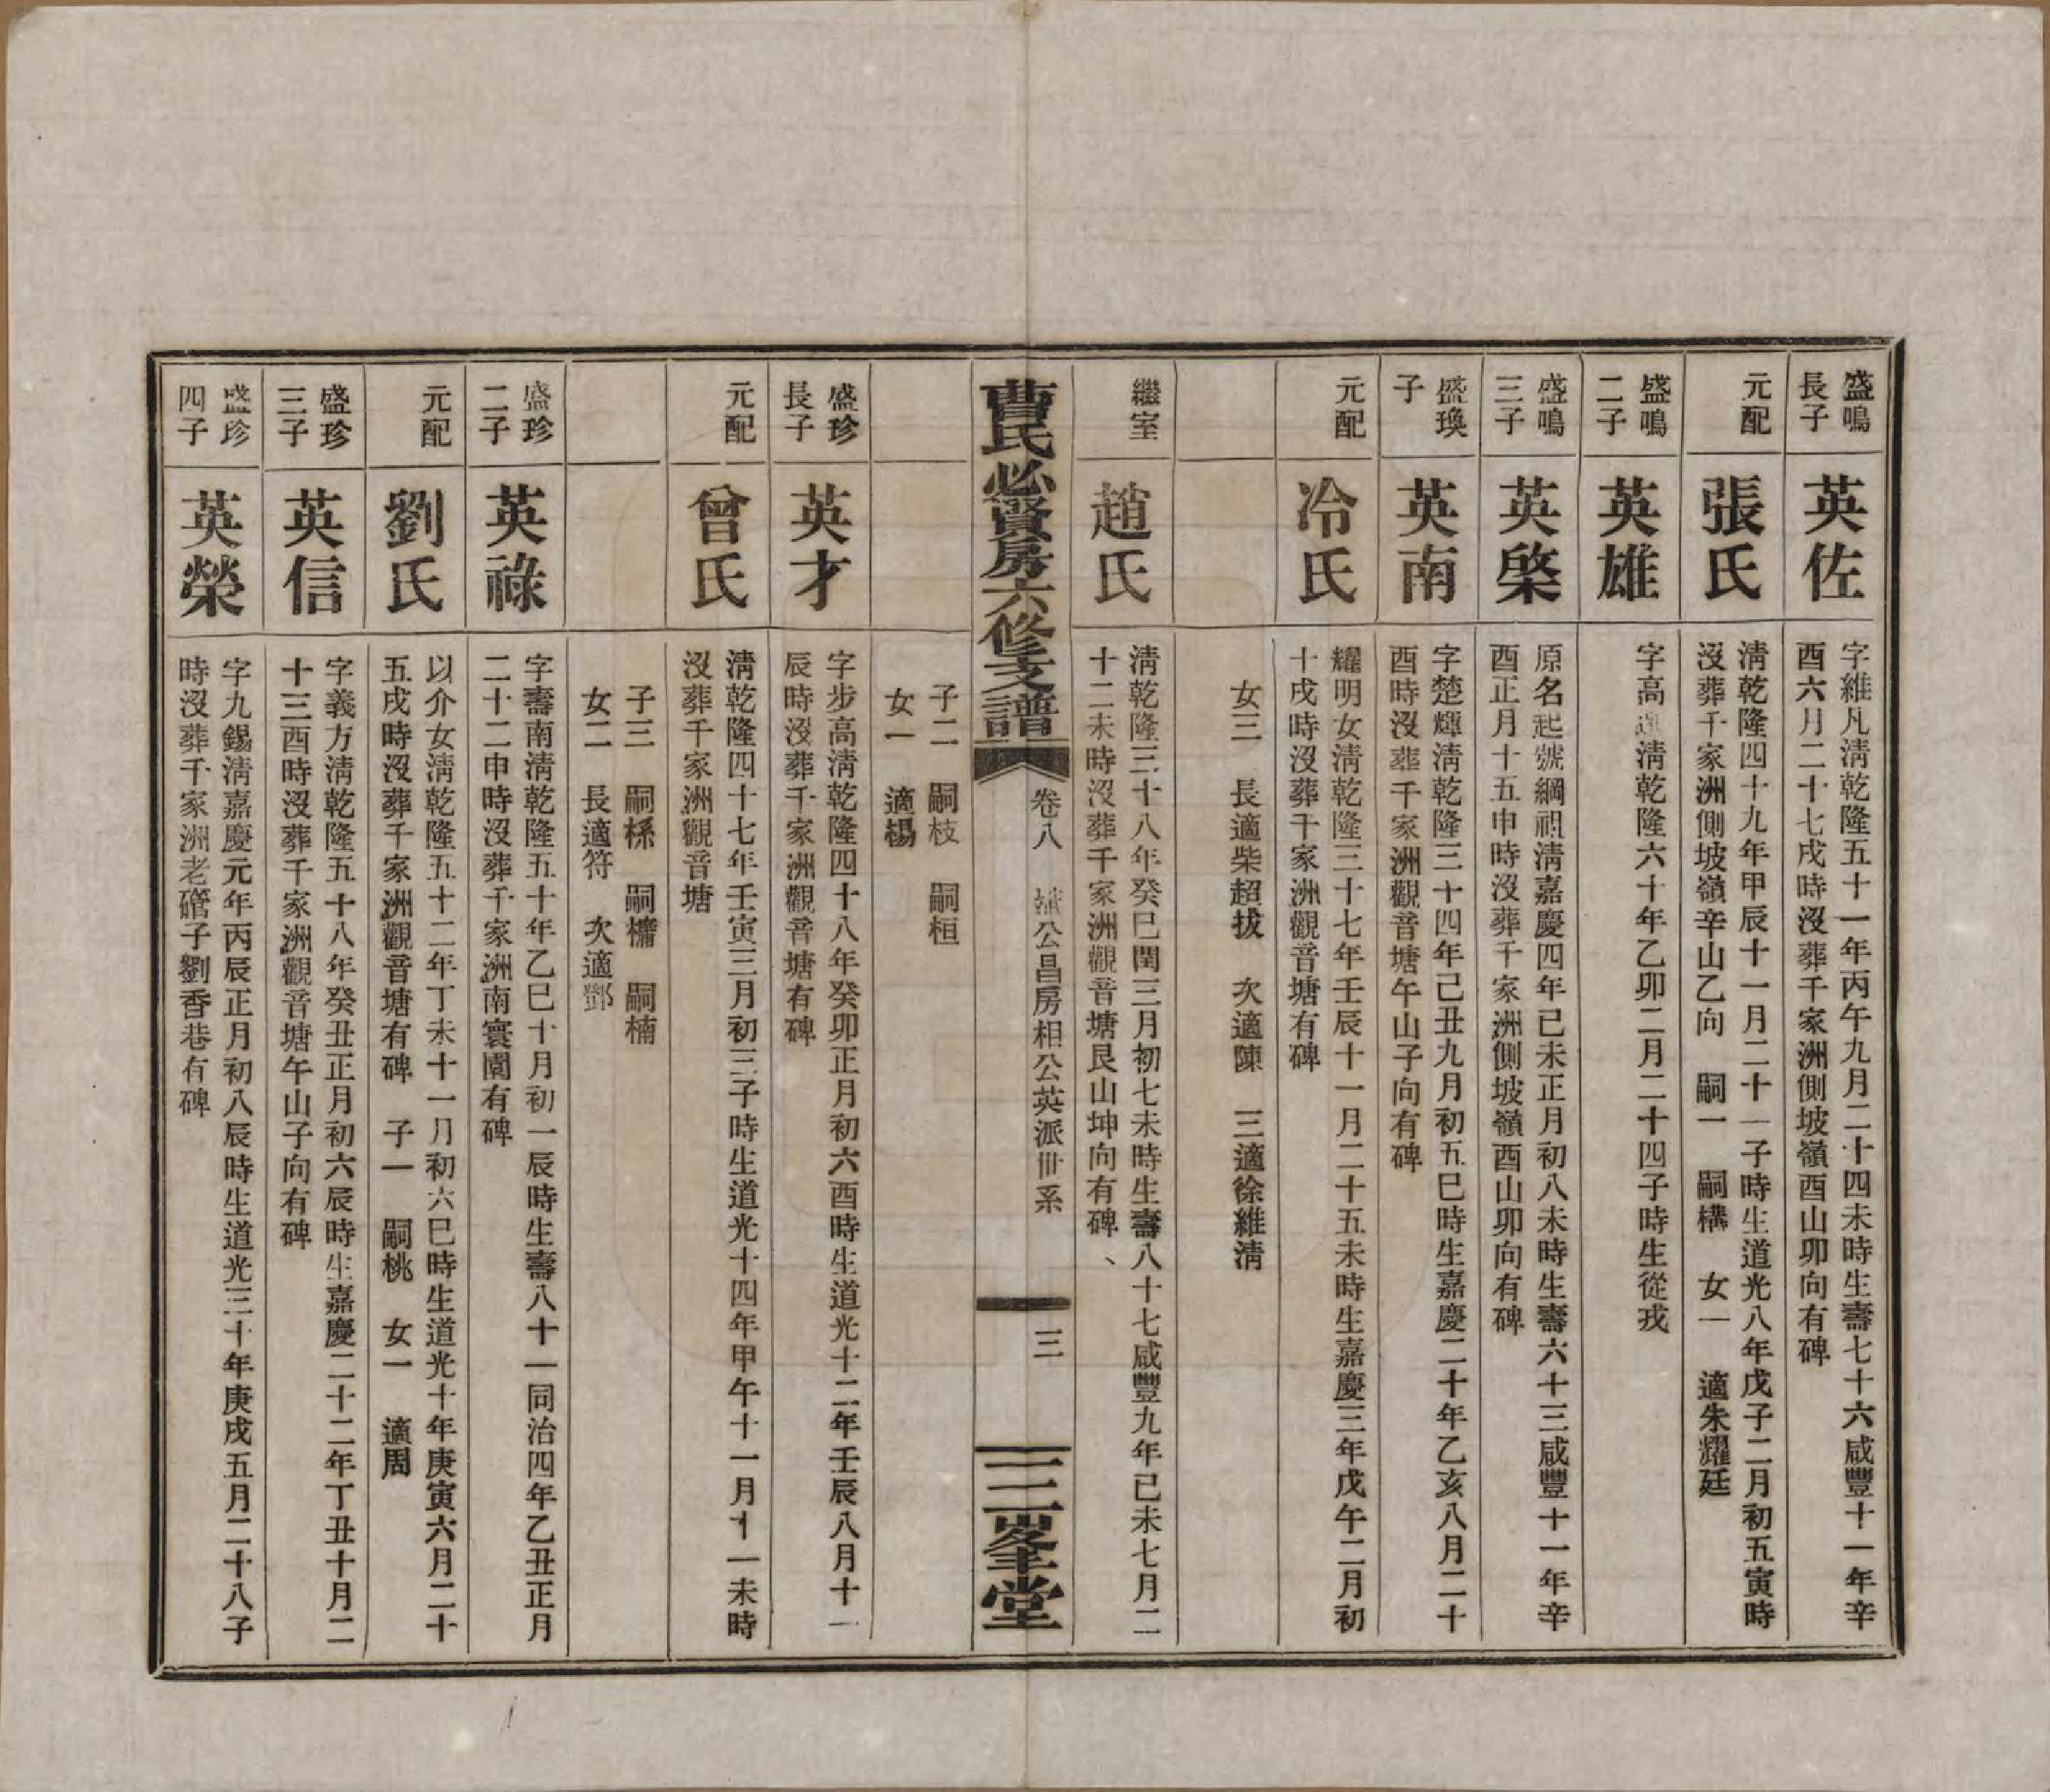 盛鳴
長子
英佐
字維凡淸乾隆五十一年丙午九月二十四未時生壽七十六咸豐十一年辛
酉六月二十七戌時沒葬千家洲側坡嶺酉山卯向有碑
元配
張氏
淸乾隆四十九年甲辰十一月二十一子時生道光八年戊子二月初五寅時
沒葬千家洲側坡嶺辛山乙向 嗣一 嗣構 女一 適朱耀廷
盛鳴
二子
英雄
字高 淸乾隆六十年乙卯二月二十四子時生從戎
盛鳴
三子
英棨
原名起號綱祖淸嘉慶四年己未正月初八未時生壽六十三咸豐十一年辛
酉正月十五申時沒葬千家洲側坡嶺酉山卯向有碑
盛瑍
子
英南
字楚輝淸乾隆三十四年己丑九月初五巳時生嘉慶二十年乙亥八月二十
酉時沒葬千家洲觀音塘午山子向有碑
元配
冷氏
耀明女淸乾隆三十七年壬辰十一月二十五未時生嘉慶三年戊午二月初
十戌時沒葬千家洲觀音塘有碑
女三 長適柴超拔 次適陳 三適徐維淸
繼室
趙氏
淸乾隆三十八年癸巳閏三月初七未時生壽八十七咸豐九年己未七月二
十二未時沒葬千家洲觀音塘艮山坤向有碑、
曹氏必賢房六修支譜
卷八 公昌房相公英派卌系
三
三峯堂
子二 嗣枝 嗣桓
女一 適楊
盛珍
長子
英才
字步高淸乾隆四十八年癸卯正月初六酉時生道光十二年壬辰八月十一
辰時沒葬千家洲觀音塘有碑
元配
曾氏
淸乾隆四十七年壬寅三月初三子時生道光十四年甲午十一月十一未時
沒葬千家洲觀音塘
子三 嗣槂 嗣㯡 嗣楠
女二 長適符 次適鄧
盛珍
二子
英祿
字壽南淸乾隆五十年乙巳十月初一辰時生壽八十一同治四年乙丑正月
二十二申時沒葬千家洲南寰園有碑
元配
劉氏
以介女淸乾隆五十二年丁未十一月初六巳時生道光十年庚寅六月二十
五戌時沒葬千家洲觀音塘有碑 子一 嗣桃 女一 適周
盛珍
三子
英信
字義方淸乾隆五十八年癸丑正月初六辰時生嘉慶二十二年丁丑十月二
十三酉時沒葬千家洲觀音塘午山子向有碑
盛珍
四子
英榮
字九錫淸嘉慶元年丙辰正月初八辰時生道光三十年庚戌五月二十八子
時沒葬千家洲老礶子劉香巷有碑